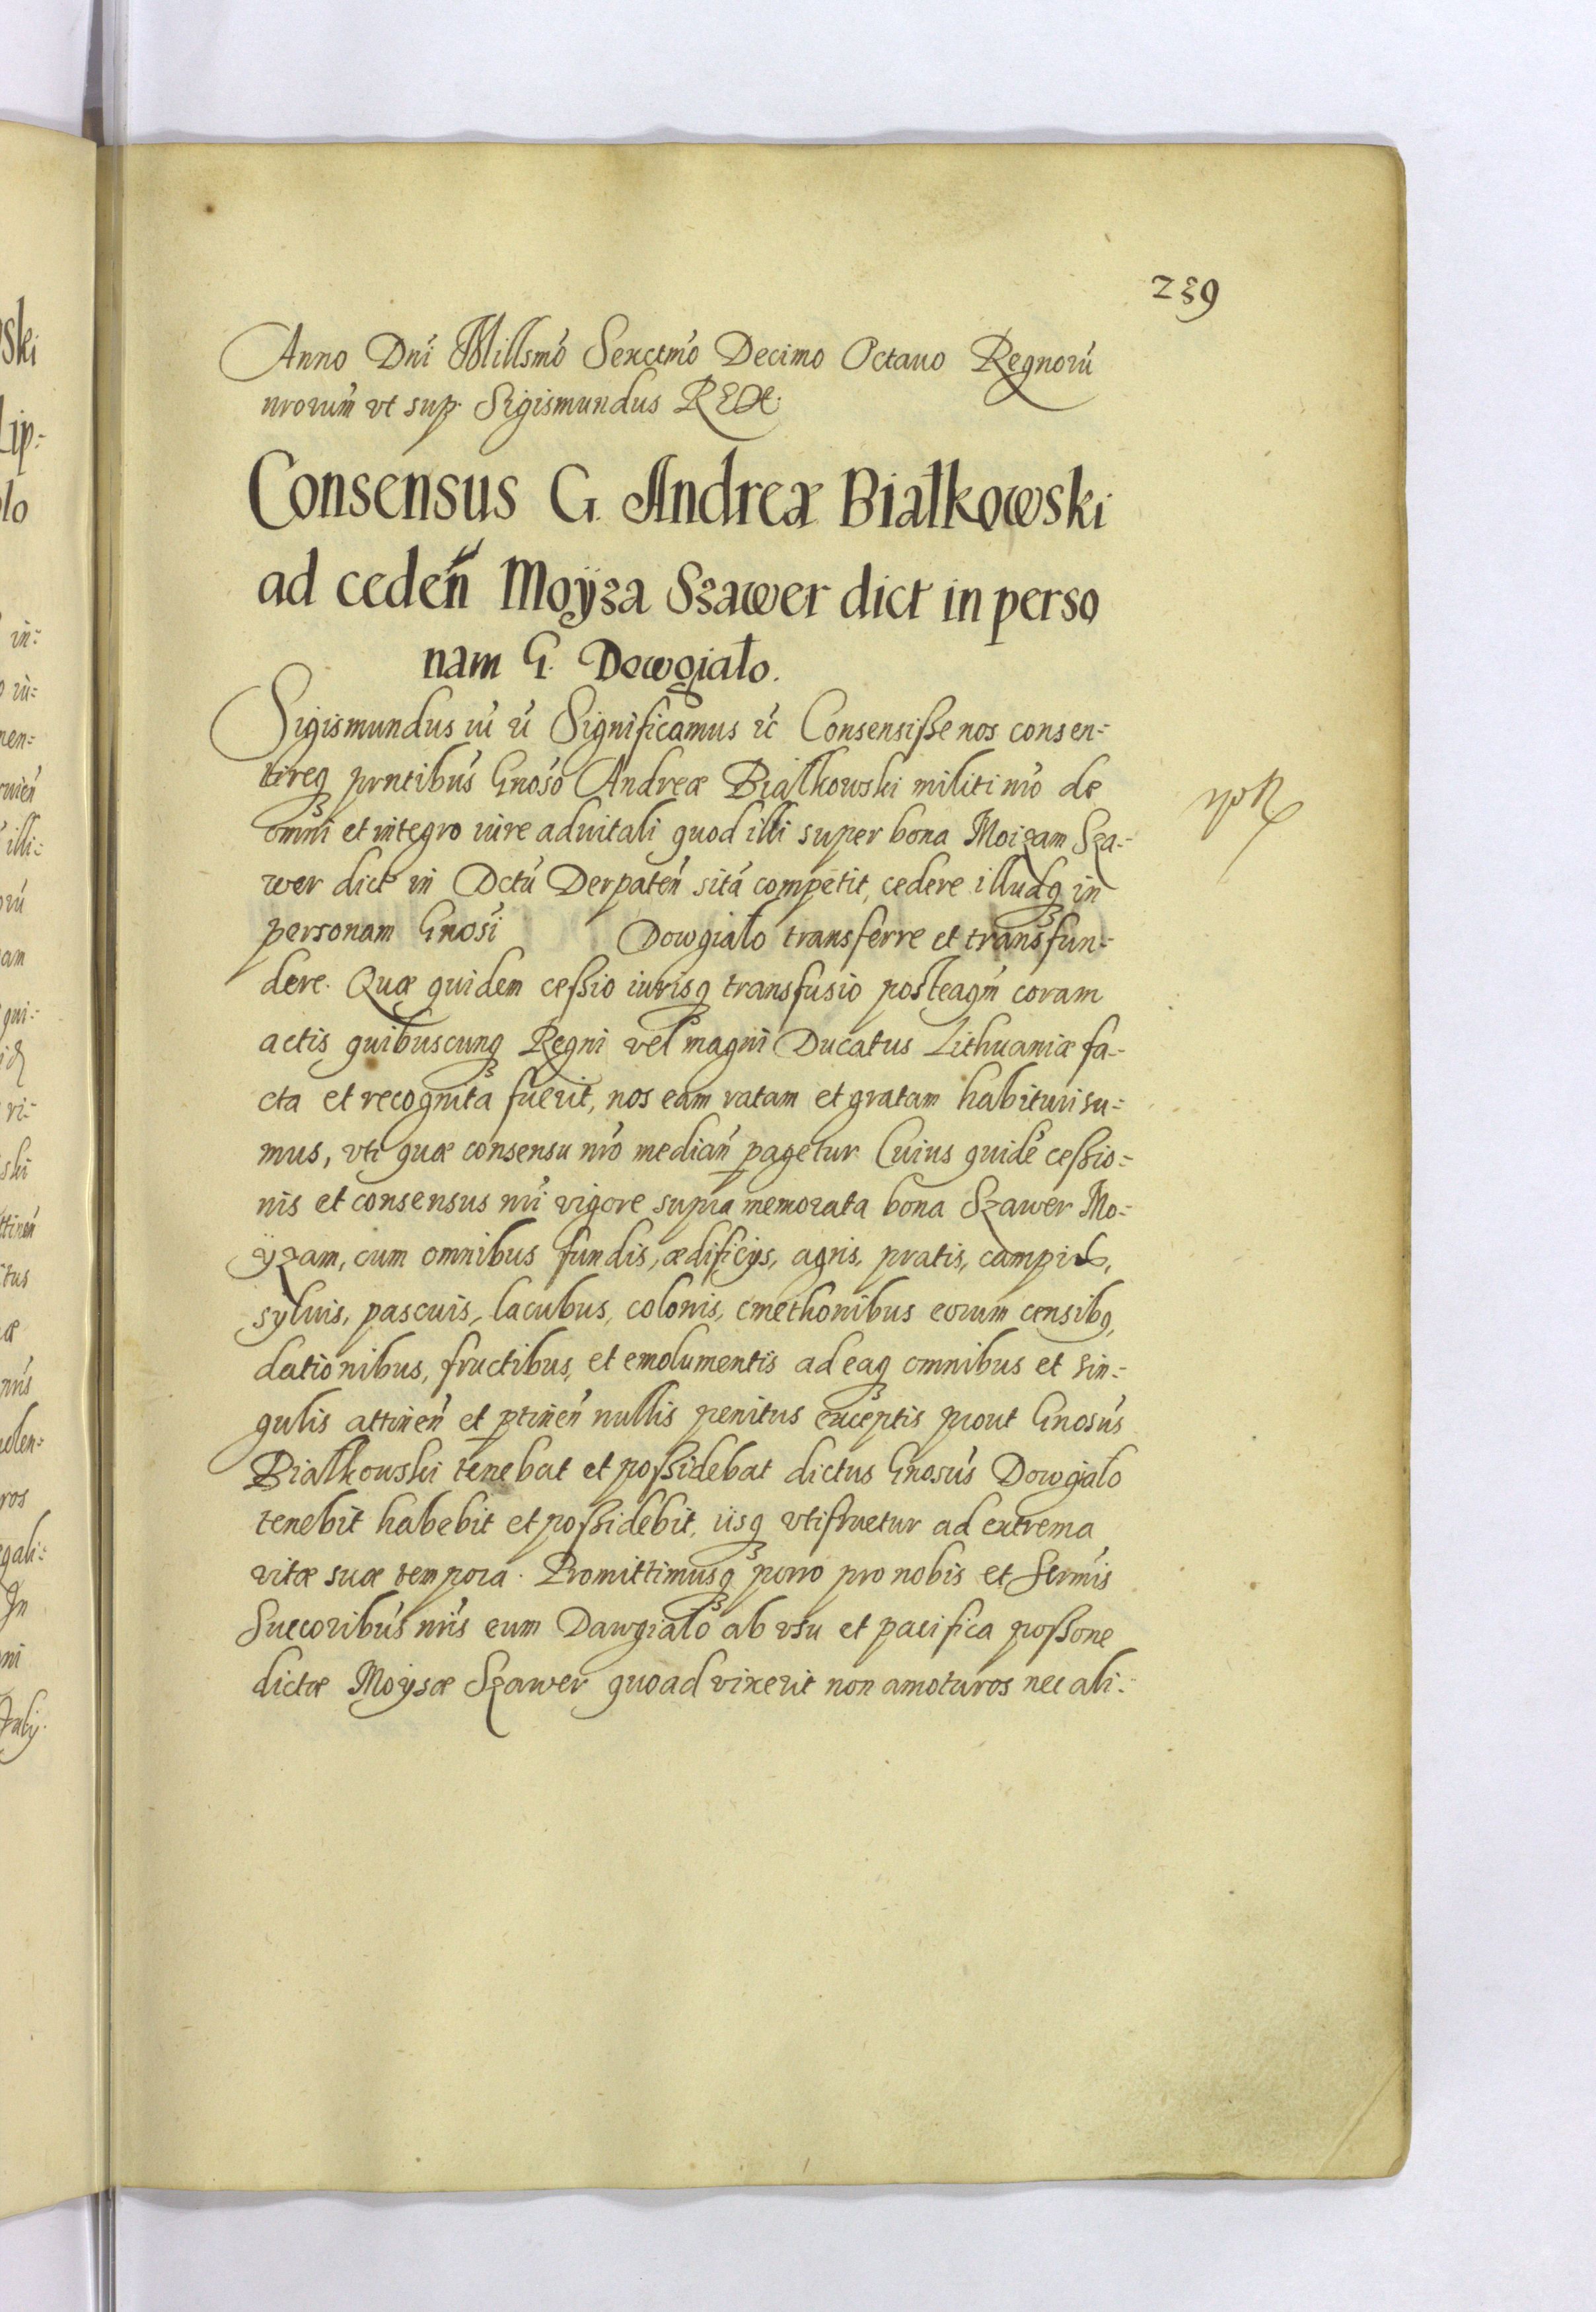 239
Anno Dni Millsmo Sexctmo Decimo Octauo Regnorũ
nrorum vt sup. Sigismundus REX.
Consensus G. Andreæ Białkowski
ad ceden Moÿza Szawer dict in perso
nam G. Dowgiało.
Sigismundus iii ec Significamus ec Consensisse nos consen:
tireq prntibus Gnoso Andreæ Białkowski militi nro de
omni et integro iure aduitali quod illi super bona Moizam Sza:
wer dict in Dctu Derpaten sita competit, cedere illudq in
personam Gnosi Dowgiało transferre et transfun:
dere. Quæ quidem cessio iurisq transfusio posteaqm coram
actis quibuscunq Regni vel magni Ducatus Lithuaniæ fa:
cta et recognita fuerit, nos eam ratam et gratam habituri su:
mus, vti quæ consensu nro median pagetur Cuius quidẽ cessio:
nis et consensus nri vigore supra memorata bona Szawer Mo:
ÿzam, cum omnibus fundis, ædificijs, agris, pratis, campis,
syluis, pascuis, lacubus, colonis, cmethonibus eorum censibq,
dationibus, fructibus, et emolumentis ad eaq omnibus et sin:
gulis attinen et ptinen nullis penitus exceptis prout Gnosus
Białkowski tenebat et possidebat dictus Gnosus Dowgiało
tenebit habebit et possidebit, iisq vtifruetur ad extrema
vitæ suæ tempora. Promittimusq porro pro nobis et Sermis
Succoribus nris eum Dawgiało ab vsu et pacifica possone
dictæ Moysæ Szawer quoad vixerit non amoturos nec ali: